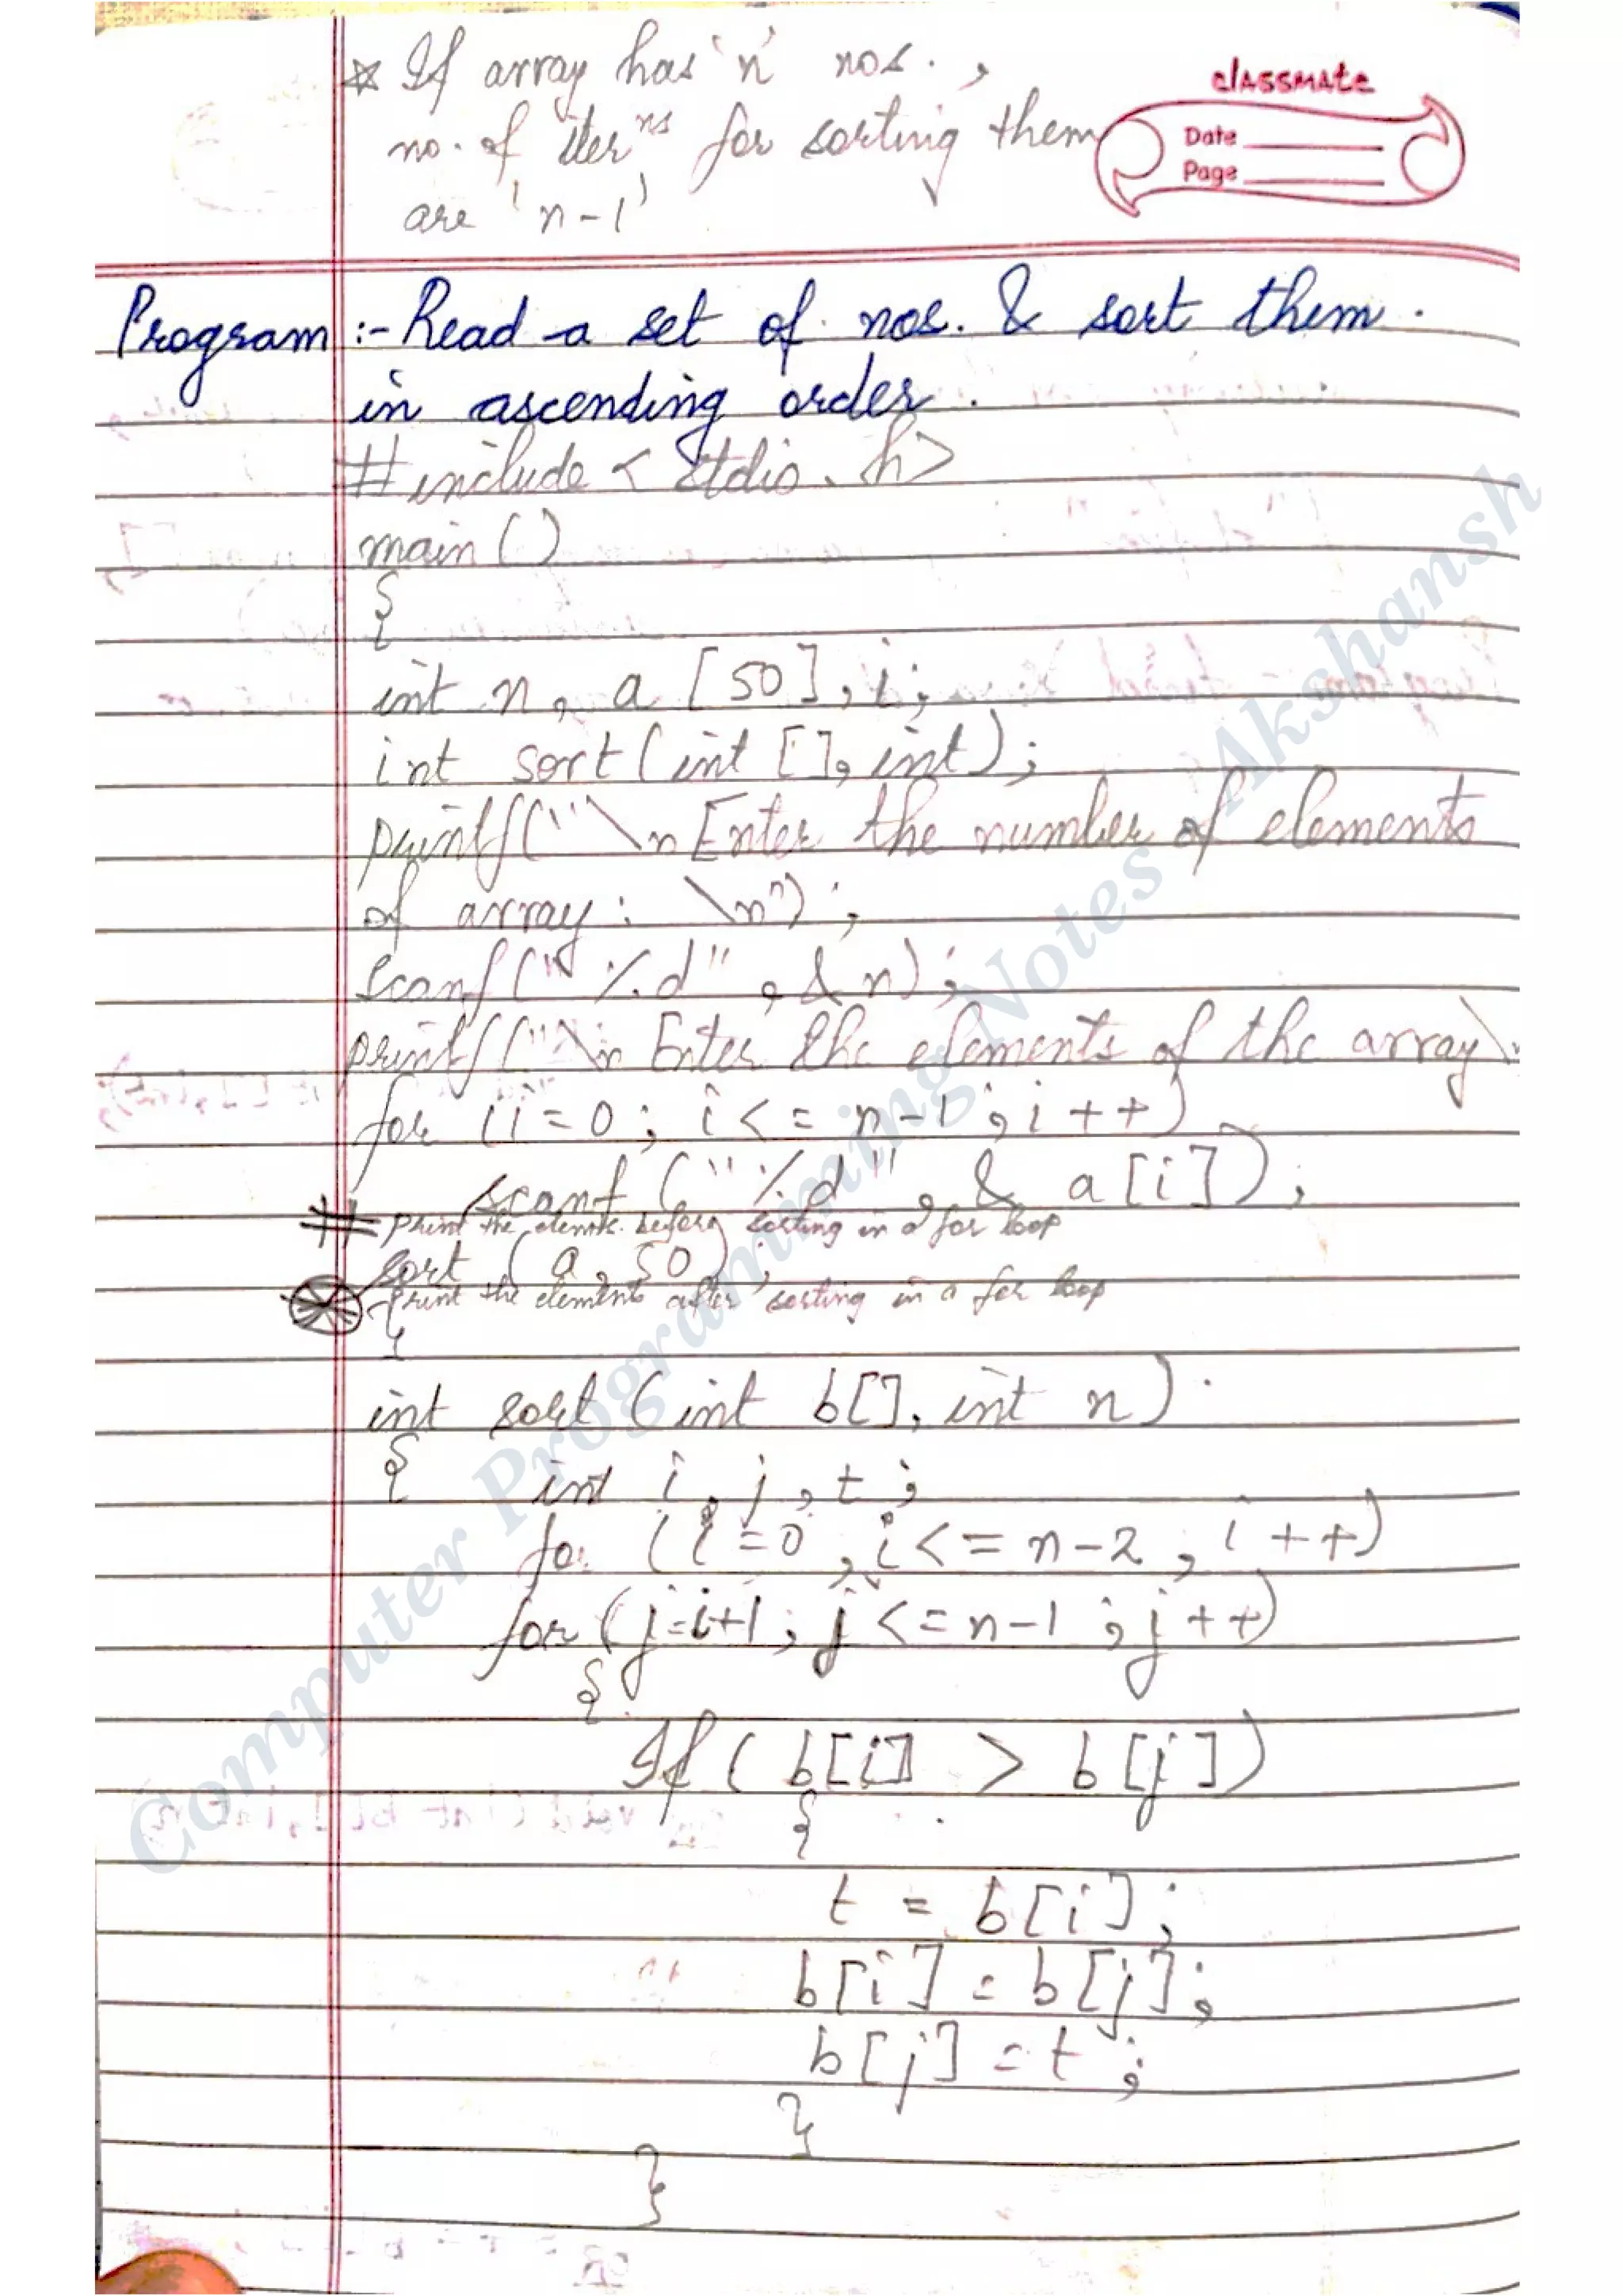 ☆ If array has 'n' nos.,
no. of iterⁿˢ for sorting them
are 'n-1'
classmate
Date
Page
Program :- Read a set of nos. & sort them
in ascending order.
#include < stdio.h>
main ()
{
int n, a [50], i;
int sort (int [], int);
printf("\n Enter the number of elements
of array: \n");
scanf("%d", &n);
printf("\n Enter the elements of the array\
for (i=0; i<=n-1; i++)
scanf ("%d", & a[i]);
# print the elemnts. before sorting in a for loop
sort (a, 50);
print the elements after sorting in a for loop
}
int sort (int b[], int n)
{ int i, j, t;
for (i=0; i<=n-2; i++)
for (j=i+1; j<=n-1; j++)
{
If ( b[i] > b[j])
{
t = b[i];
b[i] = b[j];
b[j] = t;
}
}
Computer Programming Notes Akshansh